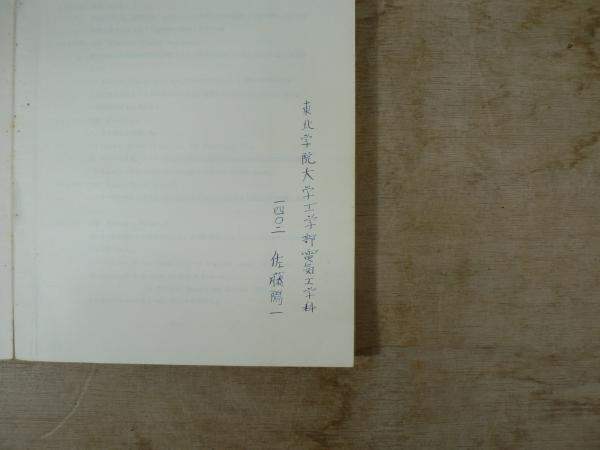 東北学院大学工学部電気工学科
一四〇二 佐藤陽一